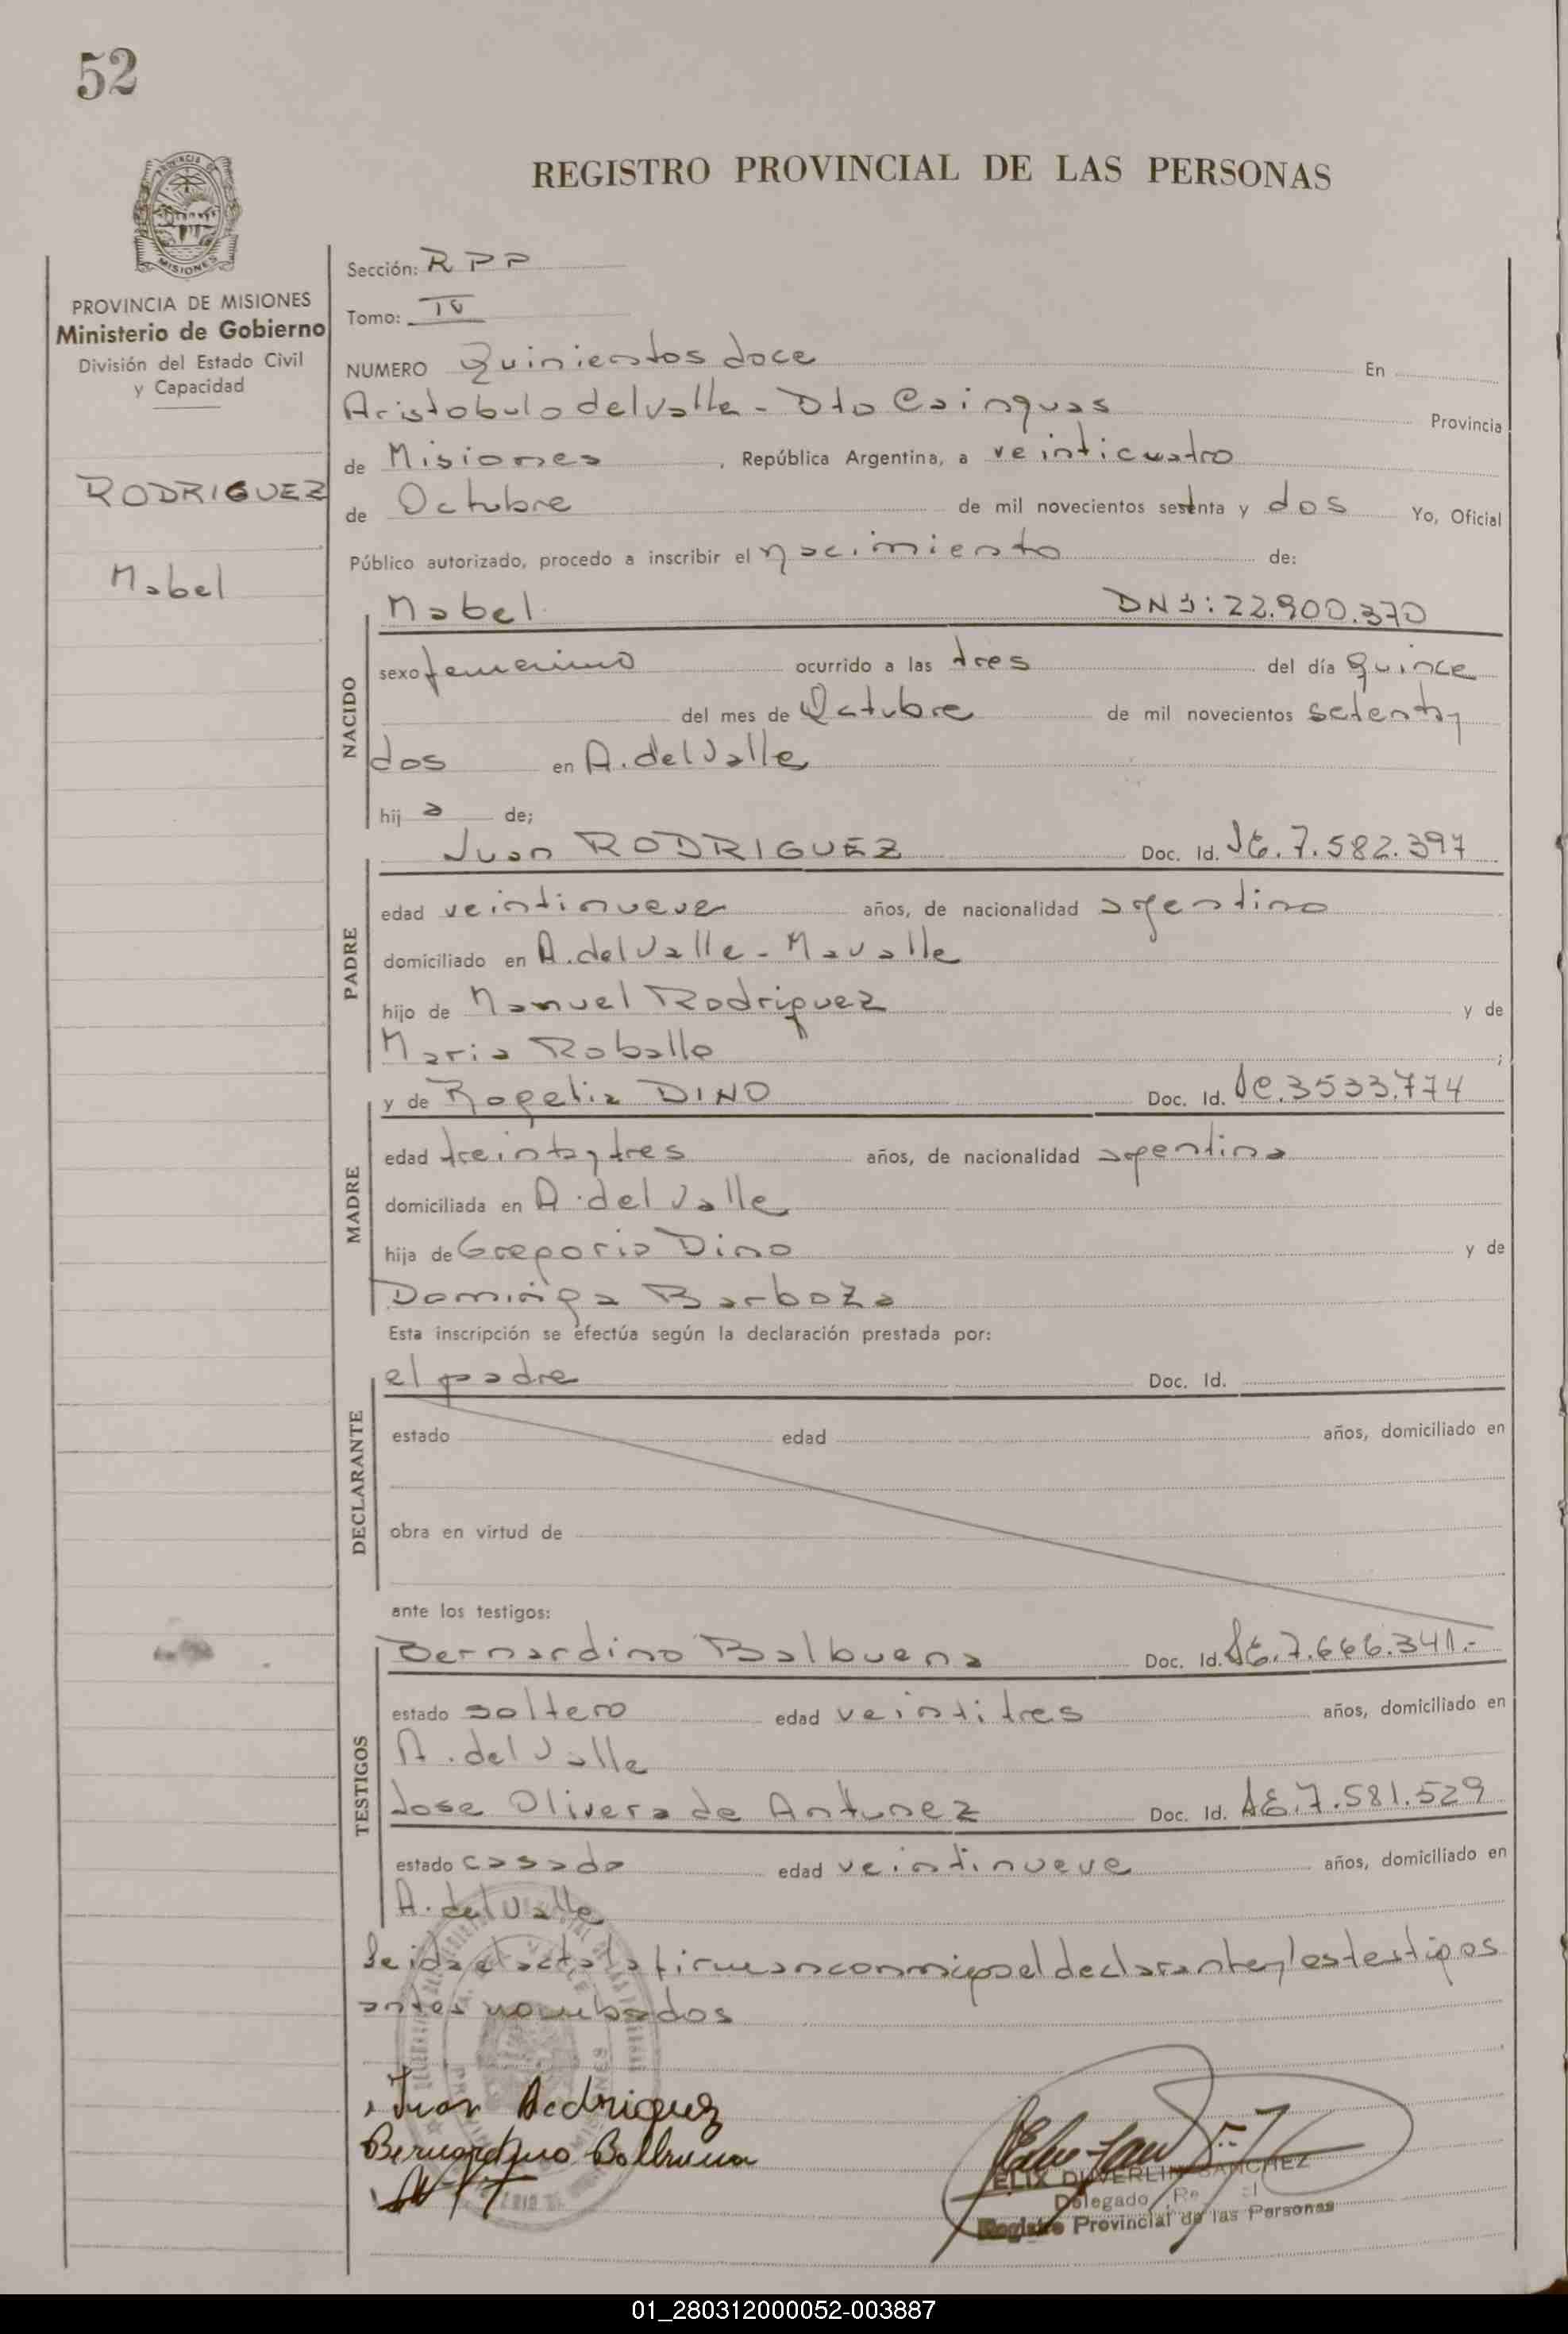 52
REGISTRO PROVINCIAL DE LAS PERSONAS
PROVINCIA DE MISIONES
Ministerio de Gobierno
División del Estado Civil
y Capacidad
RODRIGUEZ
Mabel
Sección: RPP
Tomo: IV
NUMERO Quinientos doce En
Aristobulo del valle - Dto Cainguas Provincia
de Misiones, República Argentina, a veinticuatro
de Octubre de mil novecientos setenta y dos Yo, Oficial
Público autorizado, procedo a inscribir el nacimiento de:
NACIDO
Mabel DNI: 22.900.370
sexo femenino ocurrido a las tres del día quince
del mes de Octubre de mil novecientos setenta y
dos en A. del Valle
hij a de;
PADRE
Juan RODRIGUEZ Doc. Id. LE. 7.582.397
edad veintinueve años, de nacionalidad argentino
domiciliado en A. del Valle - Mavalle
hijo de Manuel Rodriguez y de
Maria Roballo ;
MADRE
y de Rogelia DINO Doc. Id. LC. 3533.774
edad treinta y tres años, de nacionalidad argentina
domiciliada en A. del Valle
hija de Gregorio Dino y de
Dominga Barboza
Esta inscripción se efectúa según la declaración prestada por:
DECLARANTE
el padre Doc. Id.
estado edad años, domiciliado en
obra en virtud de
ante los testigos:
TESTIGOS
Bernardino Balbuena Doc. Id. LE. 7.666.341.-
estado soltero edad veintitres años, domiciliado en
A. del Valle
Jose Olivera de Antunez Doc. Id. LE. 7.581.529
estado casado edad veintinueve años, domiciliado en
A. del Valle
Leida el acta la firman conmigo el declarante y los testigos
antes nombados
Juan Rodriguez
Bernardino Balbuena
SANCHEZ
Delegado
Registro Provincial de las Personas
01_280312000052-003887